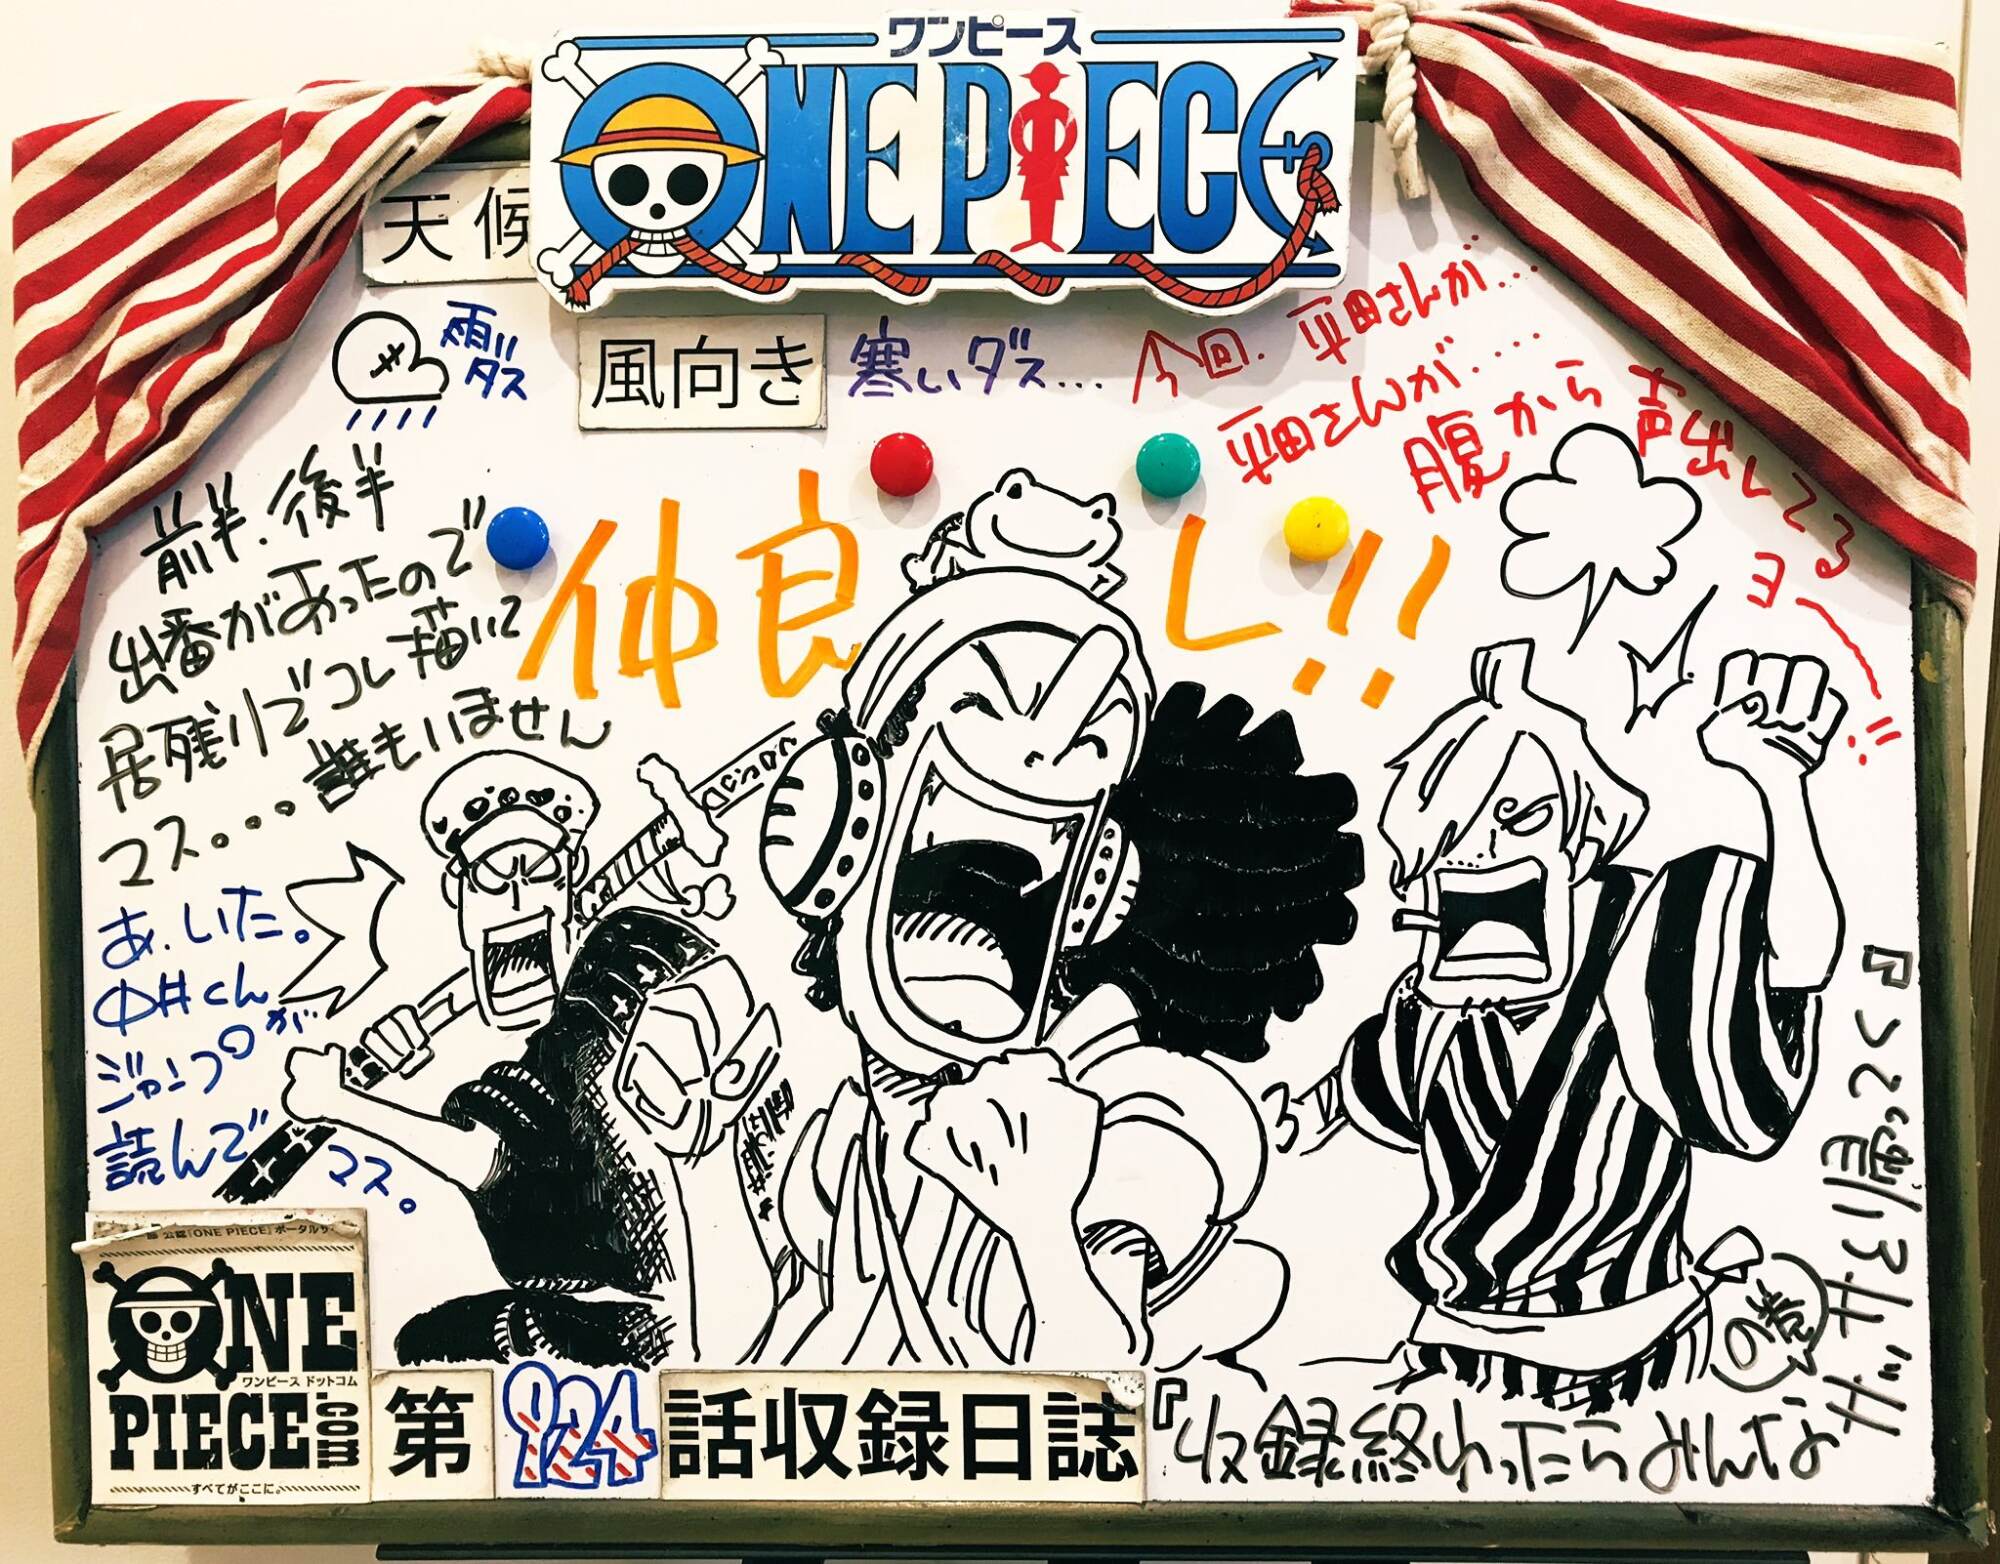 ワンピース
ONE PIECE
天候
雨ダス
風向き
寒いダス…
今回.平田さんが…
平田さんが....
腹から声出してる
ヨー!!
仲良し!!
前半.後半
出番があったので
居残りでコレ描いて
マス。。。誰もいません
あ.いた。
中井くんが
ジャンプ
読んで
マス。
公認『ONE PIECE』ポータルサ
ONE
ワンピース ドットコム
PIECE.com
すべてがここに。
第924話収録日誌
『収録終わったらみんな
の巻